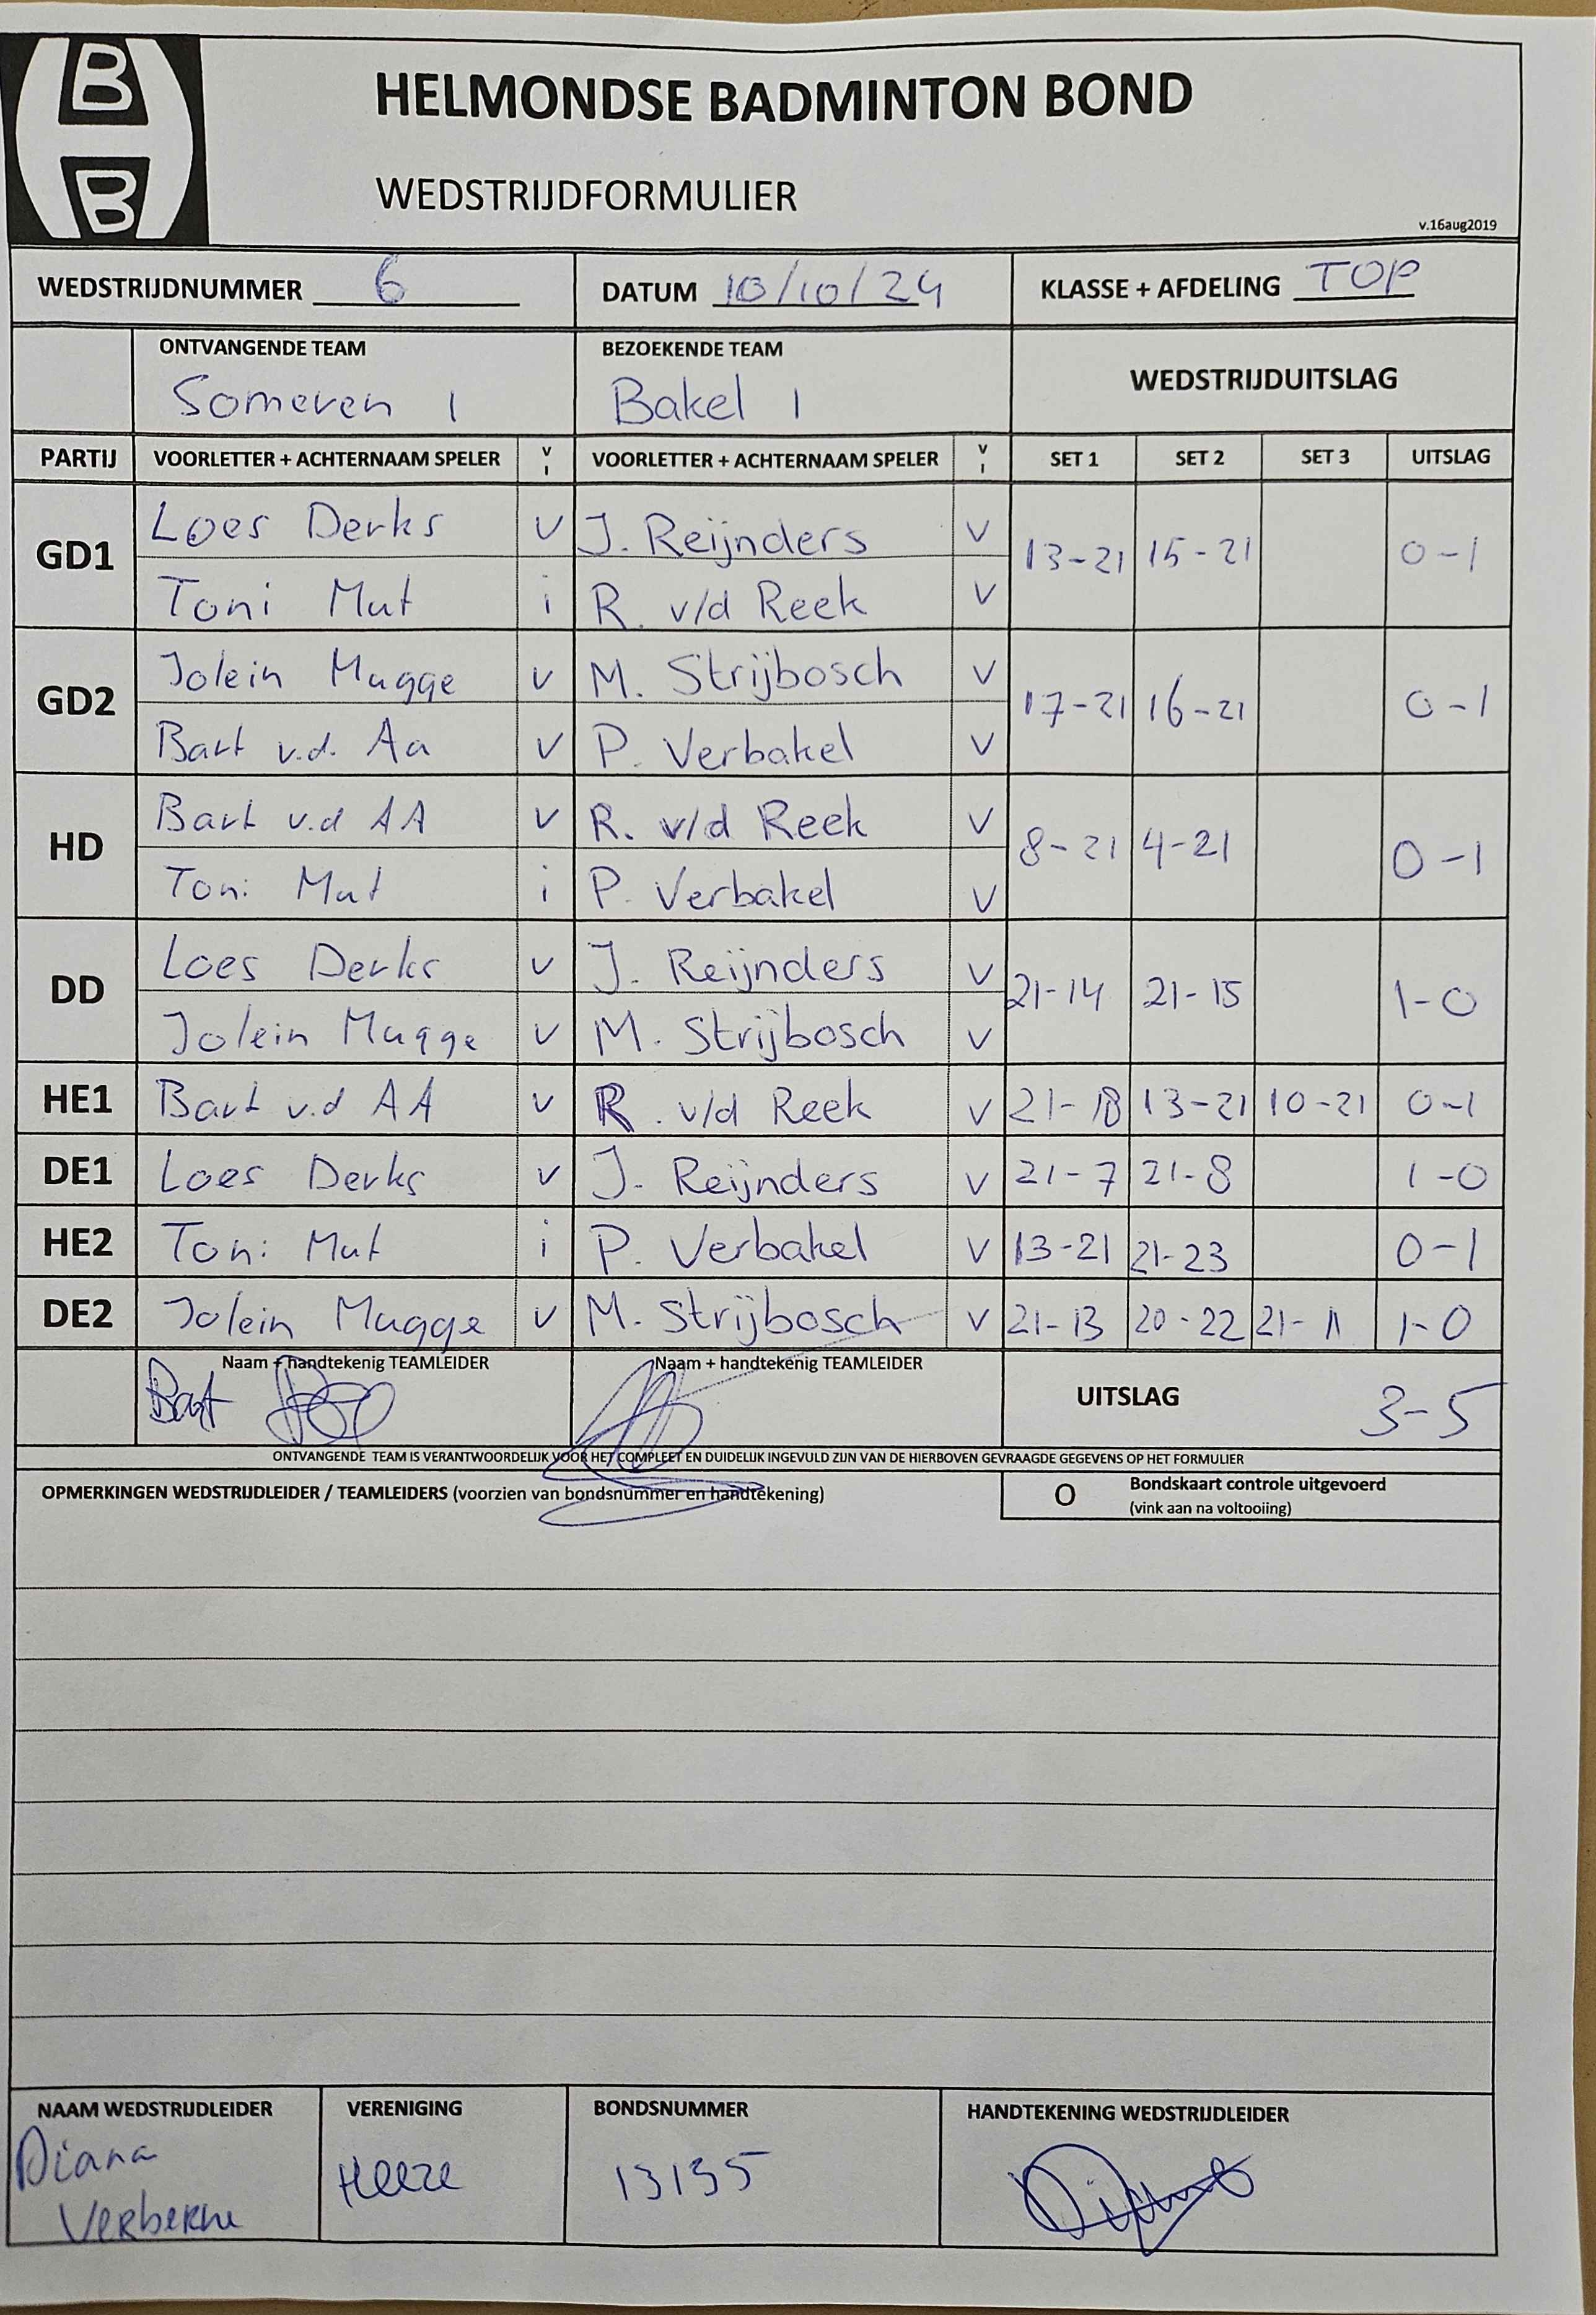 B
B
HELMONDSE BADMINTON BOND
WEDSTRIJDFORMULIER
v.16aug2019
WEDSTRIJDNUMMER 6 DATUM 10/10/24 KLASSE + AFDELING TOP
ONTVANGENDE TEAM BEZOEKENDE TEAM
Someren 1 Bakel 1 WEDSTRIJDUITSLAG
PARTIJ VOORLETTER + ACHTERNAAM SPELER V I VOORLETTER + ACHTERNAAM SPELER V I SET 1 SET 2 SET 3 UITSLAG
GD1 Loes Derks v J. Reijnders v 13-21 15-21 0-1
Toni Mut i R. v/d Reek v
GD2 Jolein Mugge v M. Strijbosch v 17-21 16-21 0-1
Bart v.d. Aa v P. Verbakel v
HD Bart v.d AA v R. v/d Reek v 8-21 4-21 0-1
Toni Mut i P. Verbakel v
DD Loes Derks v J. Reijnders v 21-14 21-15 1-0
Jolein Mugge v M. Strijbosch v
HE1 Bart v.d AA v R. v/d Reek v 21-18 13-21 10-21 0-1
DE1 Loes Derks v J. Reijnders v 21-7 21-8 1-0
HE2 Toni Mut i P. Verbakel v 13-21 21-23 0-1
DE2 Jolein Mugge v M. Strijbosch v 21-13 20-22 21-11 1-0
Naam + handtekenig TEAMLEIDER Naam + handtekenig TEAMLEIDER
Bart UITSLAG 3-5
ONTVANGENDE TEAM IS VERANTWOORDELIJK VOOR HET COMPLEET EN DUIDELIJK INGEVULD ZIJN VAN DE HIERBOVEN GEVRAAGDE GEGEVENS OP HET FORMULIER
OPMERKINGEN WEDSTRIJDLEIDER / TEAMLEIDERS (voorzien van bondsnummer en handtekening) O Bondskaart controle uitgevoerd
(vink aan na voltooiing)
NAAM WEDSTRIJDLEIDER VERENIGING BONDSNUMMER HANDTEKENING WEDSTRIJDLEIDER
Diana Heeze 13135
Verberne